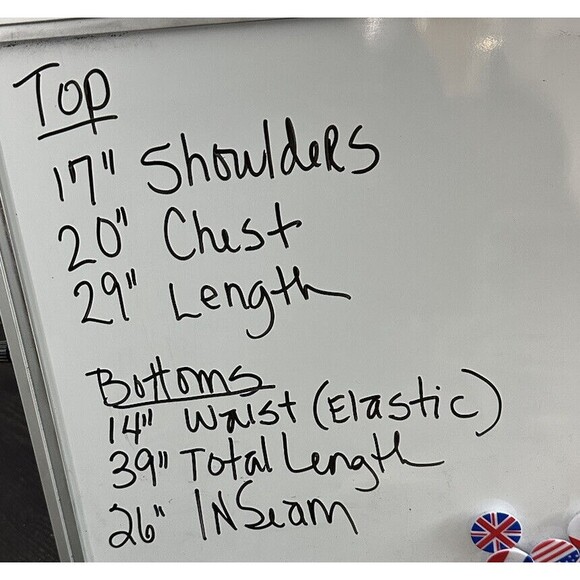 Top
17" Shoulders
20" Chest
29" Length
Bottoms
14" Waist (Elastic)
39" Total Length
26" INSeam